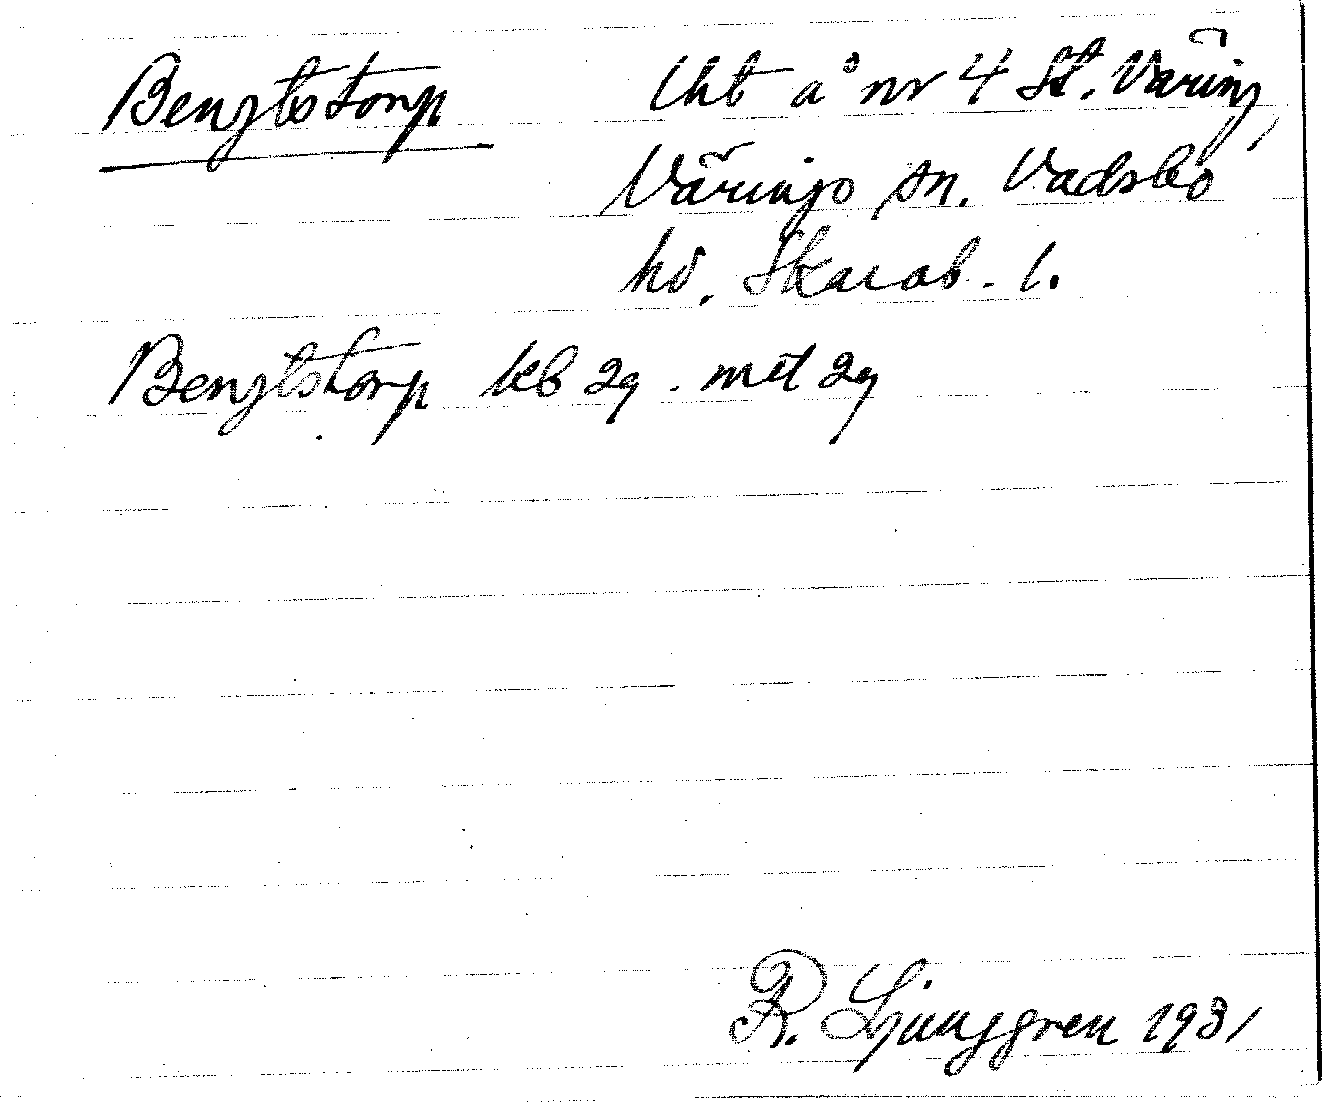 Bengtstorp lht å nr 4 St. Väring,
Värings sn. Vadsbo
hd. Skarab. l.
Bengtstorp kb 29. mtl 29
R. Ljunggren 1931